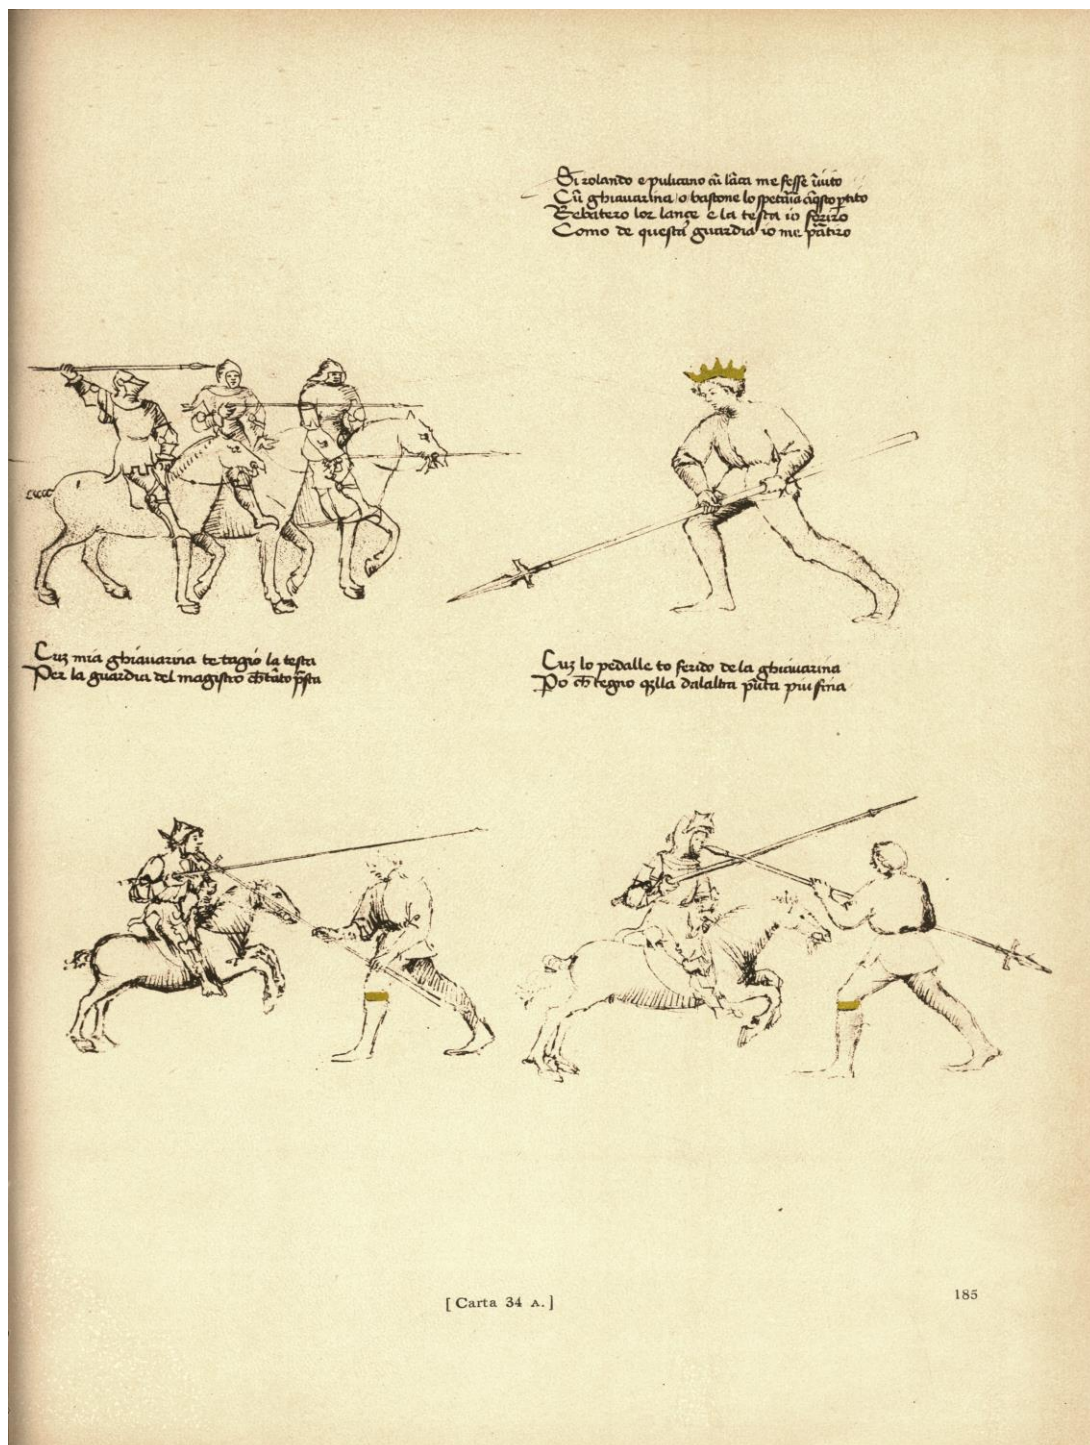 Si rolando e pulicano cũ lãca me fesse ĩuito
Cũ ghiavarina o bastone lo
Rebatero lor lance e la testa io feriro
Como de questa guardia io me pãtiro
Cuz mia ghiavarina te tagio la testa
Per la guardia del magistro ch̃ tãto p̃sta
Cuz lo pedalle to ferido de la ghiavarina
Po ch̃ tegno q̃lla dalaltra pũta piu fina
[ Carta 34 A. ]
185